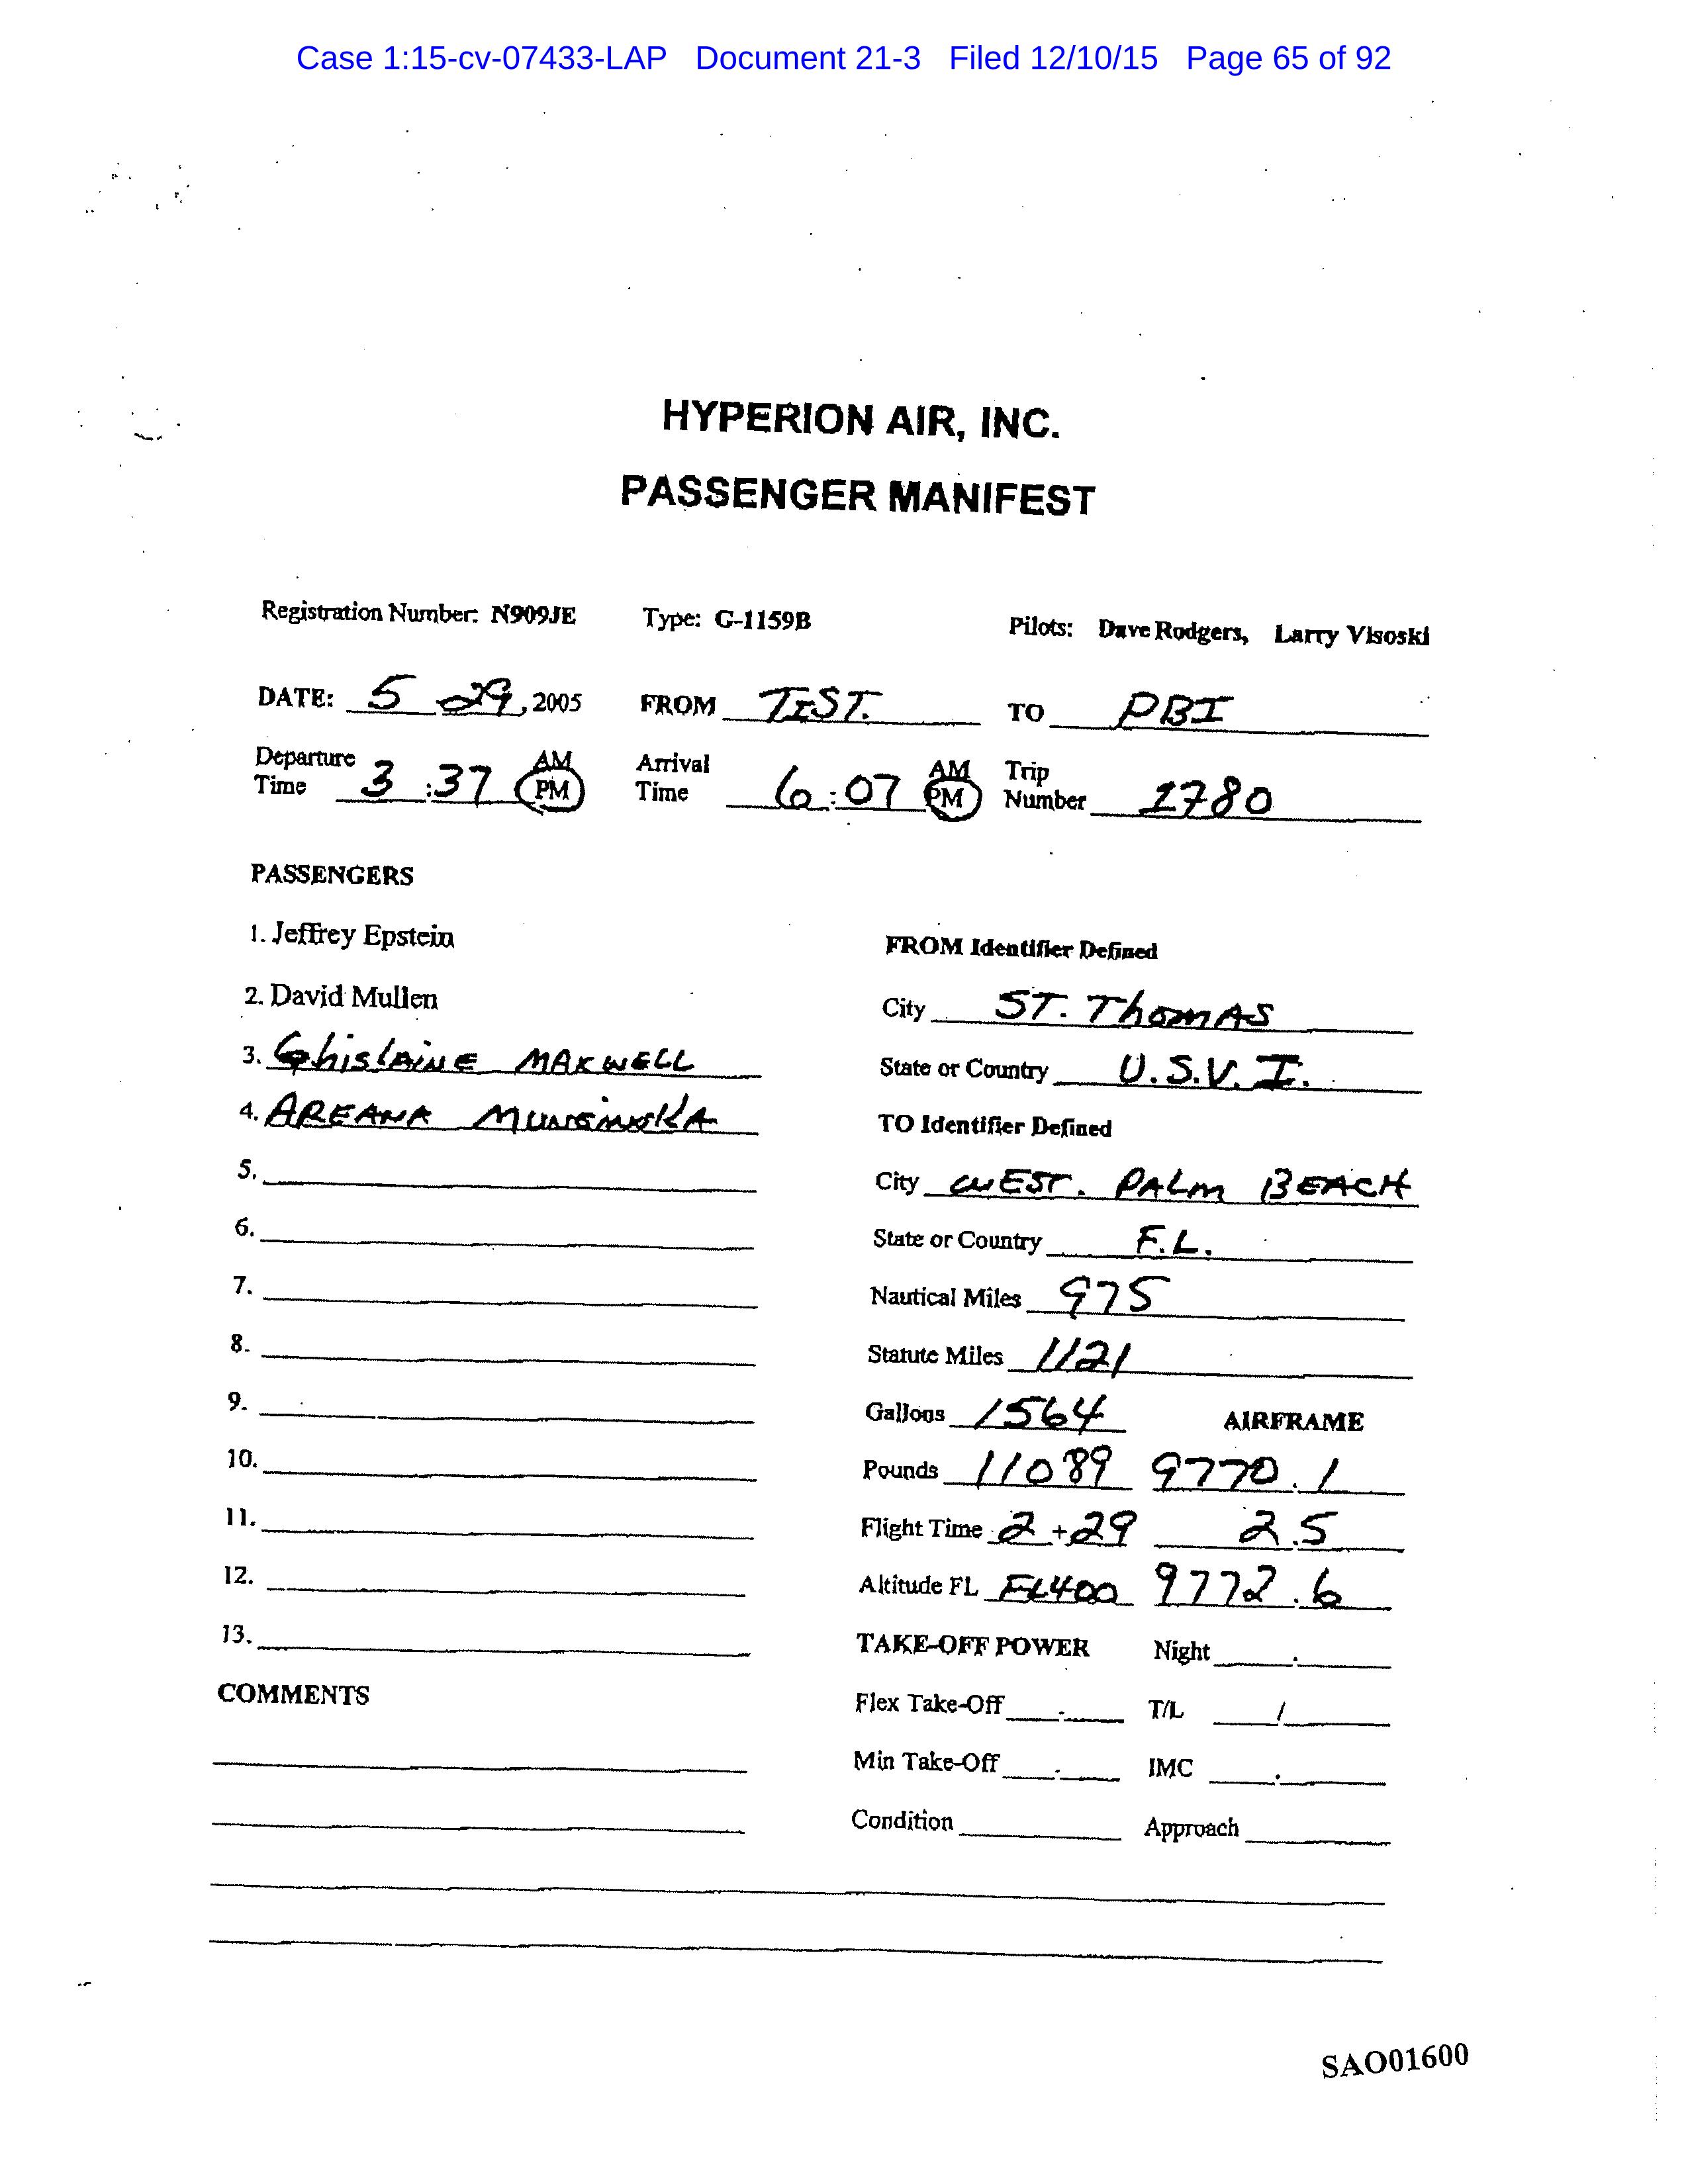 Case 1:15-cv-07433-LAP Document 21-3 Filed 12/10/15 Page 65 of 92
HYPERION AIR, INC.
PASSENGER MANIFEST
Registration Number: N909JE Type: G-1159B Pilots: Dave Rodgers, Larry Visoski
DATE: 5 29, 2005 FROM TIST. TO PBI
Departure Time 3:37 AM PM Arrival Time 6:07 AM PM Trip Number 1780
PASSENGERS
1. Jeffrey Epstein
2. David Mullen
3. Ghislaine MAXWELL
4. AREANA
5.
6.
7.
8.
9.
10.
11.
12.
13.
COMMENTS
FROM Identifier Defined
City ST. ThomAS
State or Country U.S.V.I.
TO Identifier Defined
City WEST. PALM BEACH
State or Country F.L.
Nautical Miles 975
Statute Miles 1121
Gallons 1564 AIRFRAME
Pounds 11089 9770.1
Flight Time 2+29 2.5
Altitude FL FL400 9772.6
TAKE-OFF POWER Night .
Flex Take-Off . T/L /
Min Take-Off . IMC .
Condition Approach
SAO01600